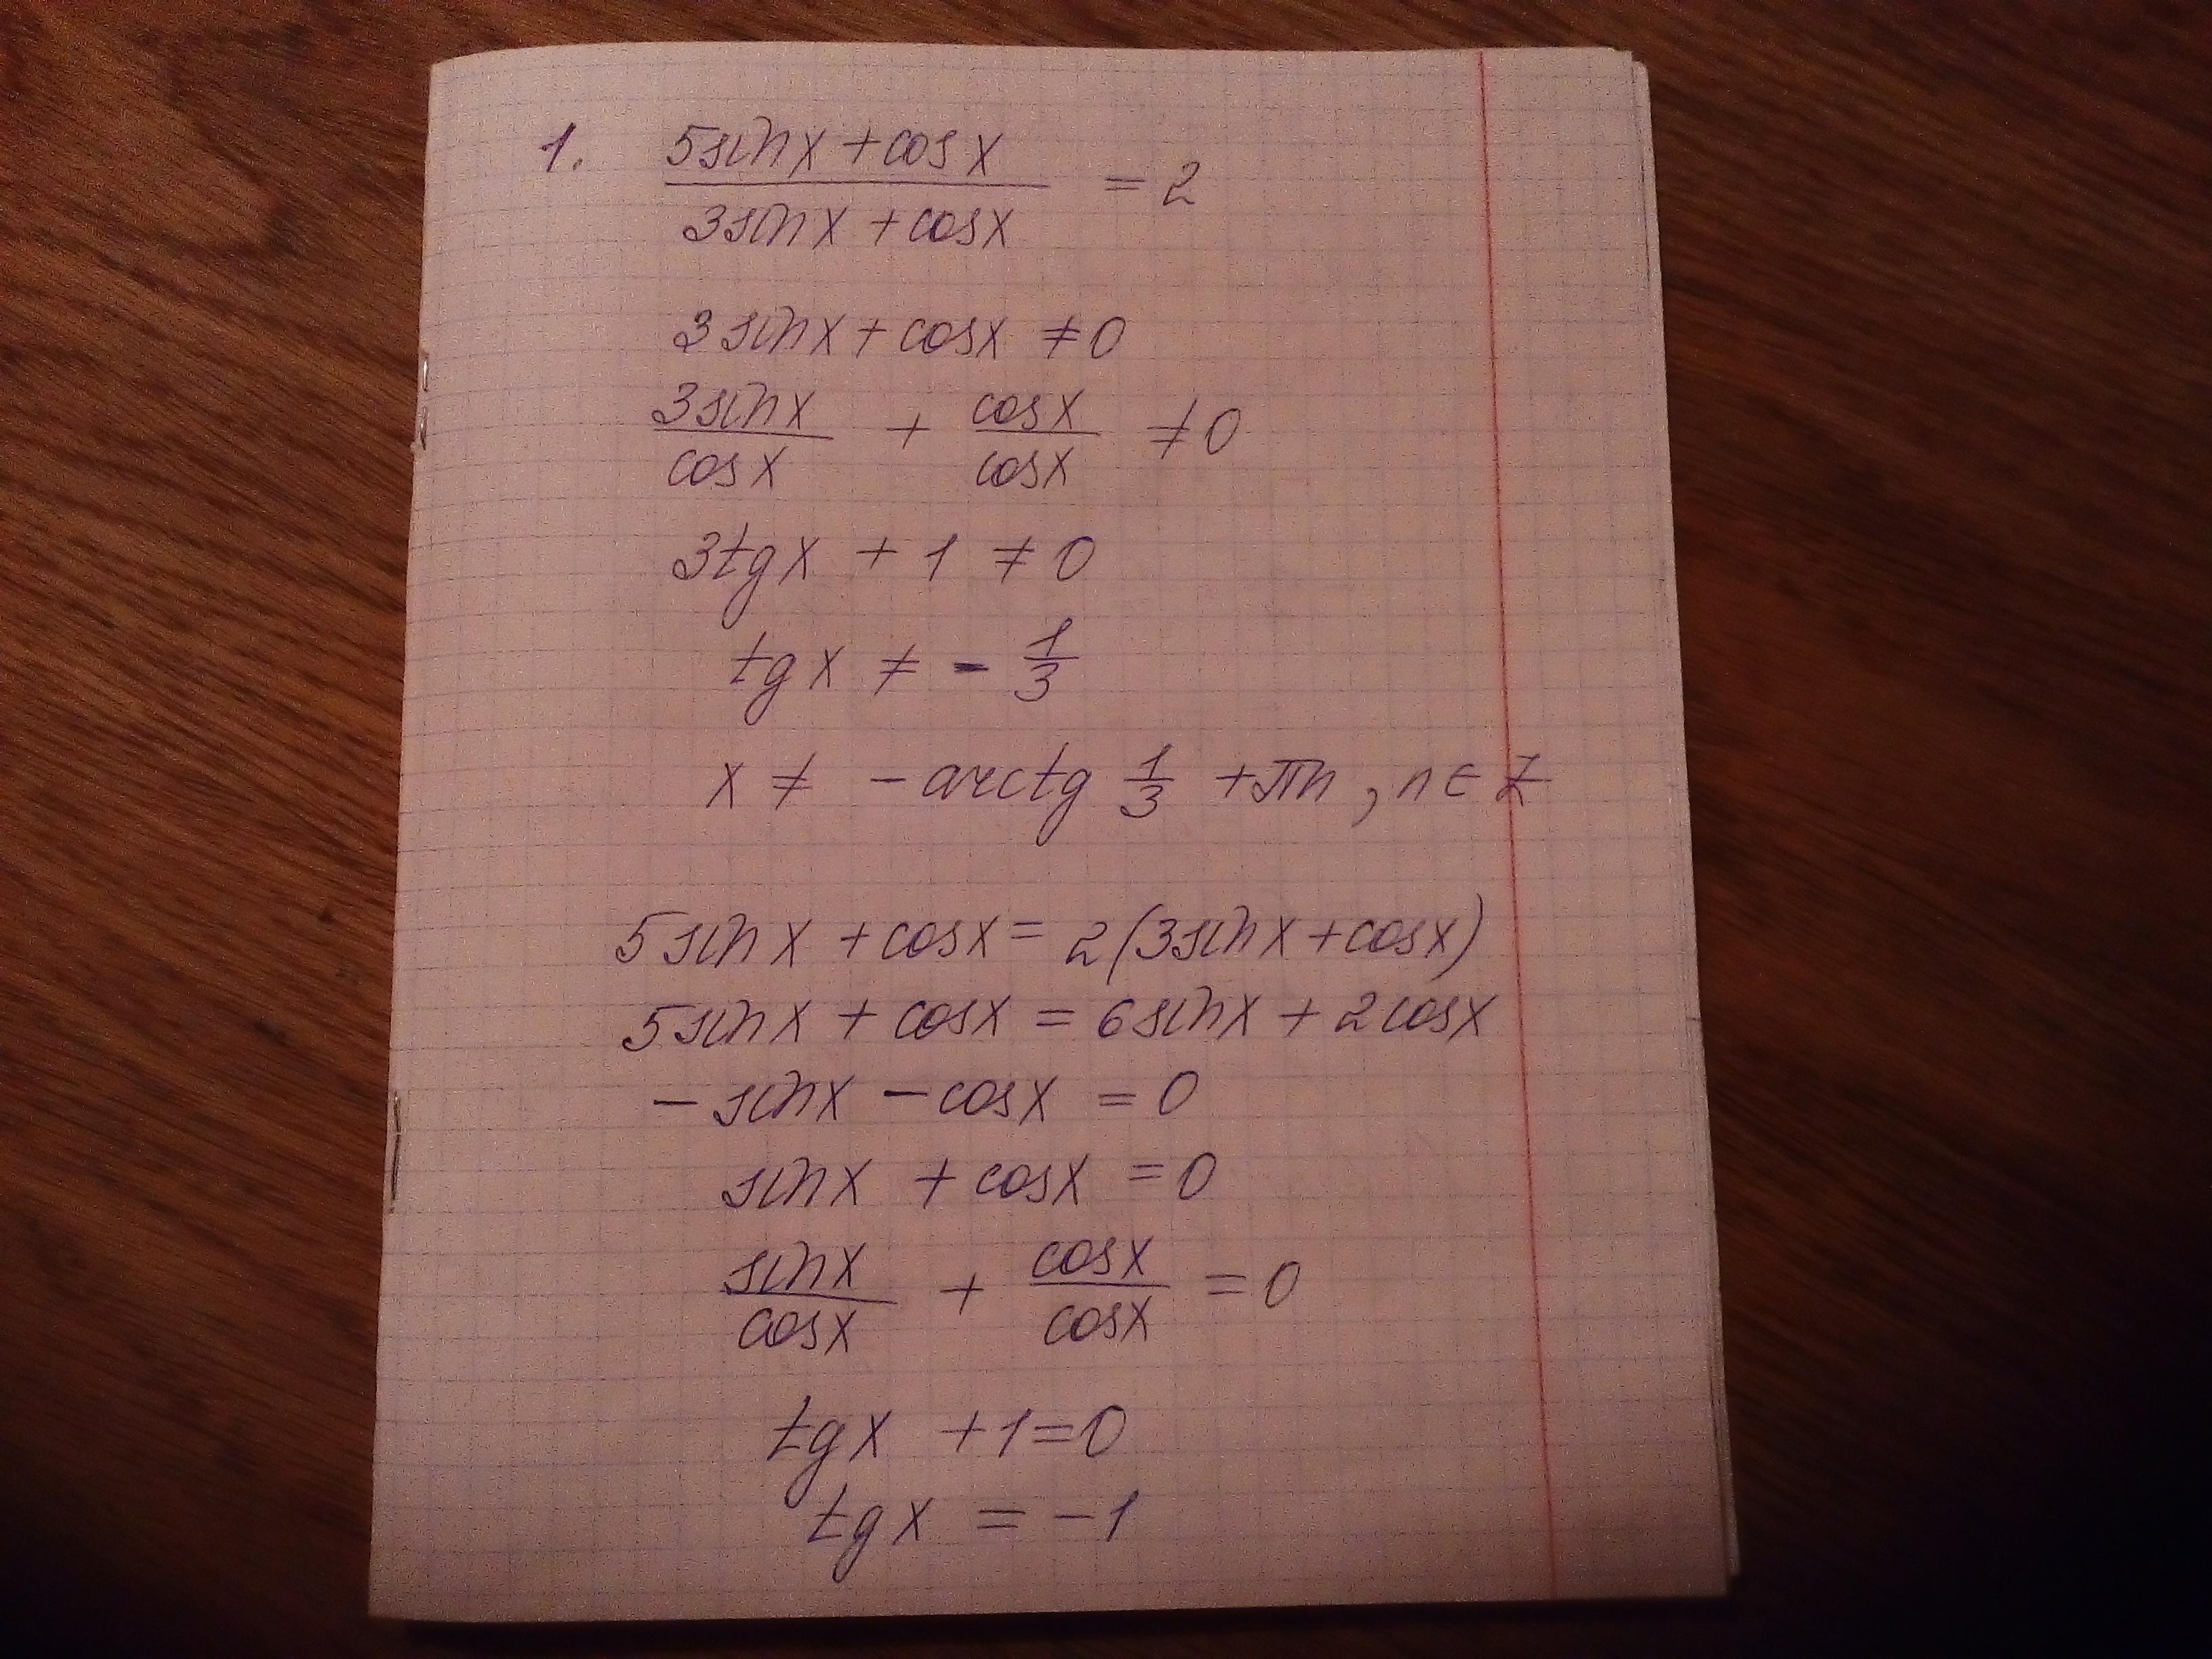 1. (5sinx + cosx)/(3sinx + cosx) = 2
3sinx + cosx ≠ 0
3sinx/cosx + cosx/cosx ≠ 0
3tgx + 1 ≠ 0
tgx ≠ - 1/3
x ≠ - arctg 1/3 + πn, n ∈ Z
5sinx + cosx = 2(3sinx + cosx)
5sinx + cosx = 6sinx + 2cosx
- sinx - cosx = 0
sinx + cosx = 0
sinx/cosx + cosx/cosx = 0
tgx + 1 = 0
tgx = -1